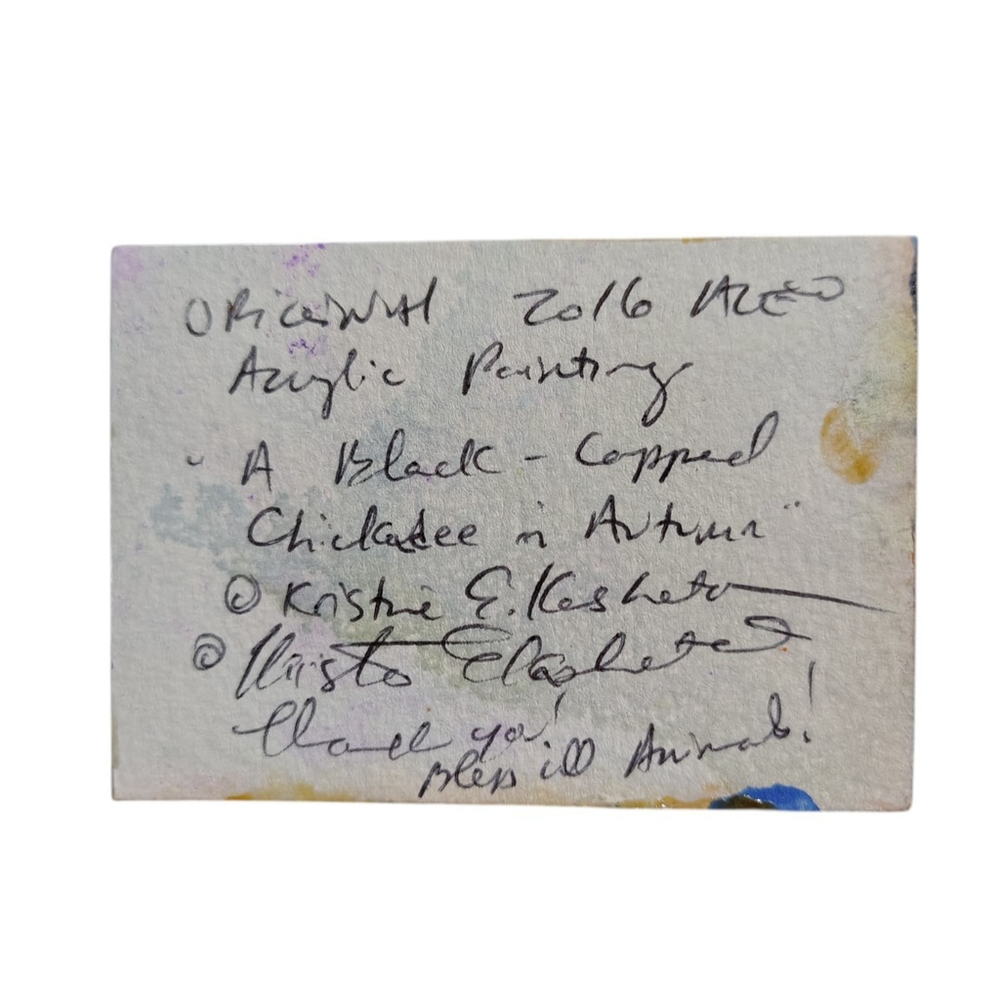 ORIGINAL 2016 ACEO
Acrylic Painting
" A Black-Capped
Chickadee in Autumn"
© Kristine E. Kasheta
©
Thank you!
Bless all Animals!